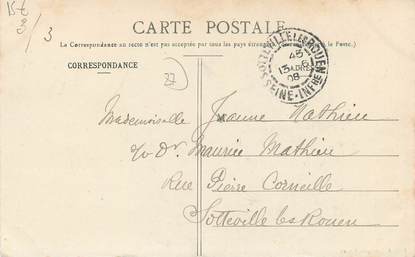 15€
3/3
CARTE POSTALE
(La Correspondance au recto n'est pas acceptée par tous les pays étrangers
le Poste.)
CORRESPONDANCE
27
SOTTEVILLE LES ROUEN
SEINE-INFRE
08
Mademoiselle Jeanne Mathieu
Dr. Maurice Mathieu
Rue Pierre Corneille
Sotteville les Rouen